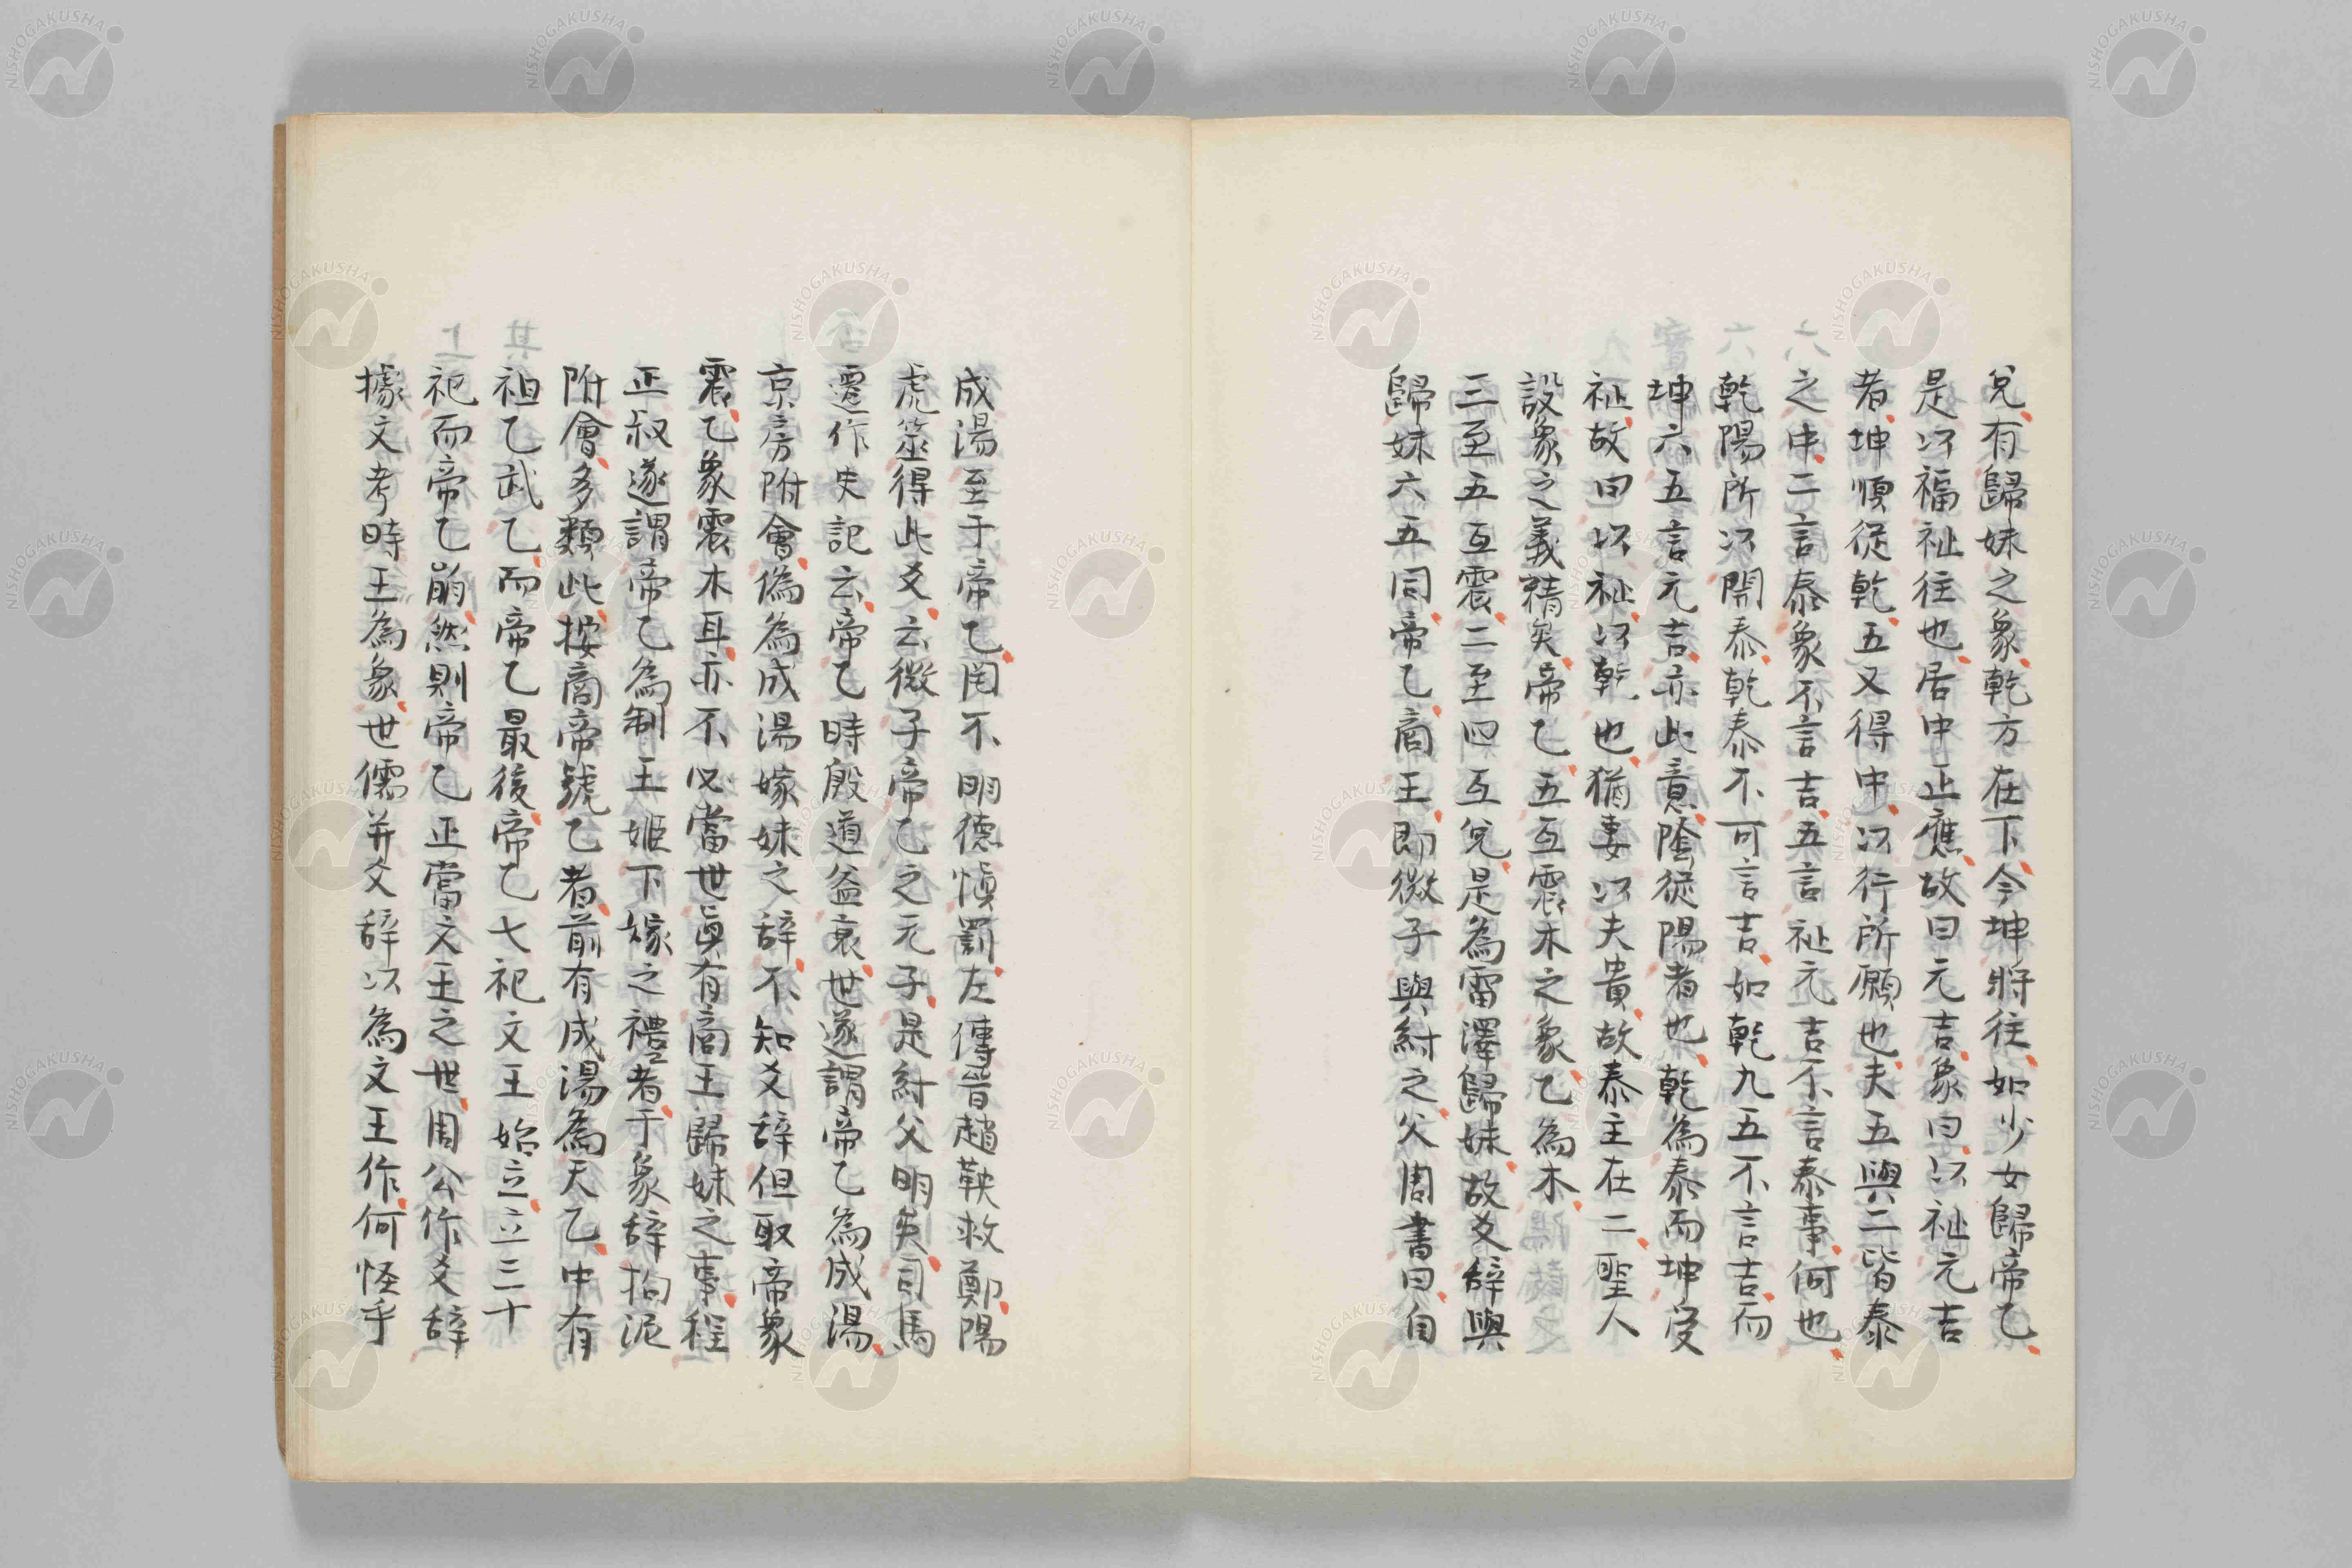 兌有歸妹之象乾方在下今坤將往如少女歸帝乙
是以福祉往也居中正應故曰元吉象曰以祉元吉
者坤順從乾五又得中以行所願也夫五與二皆泰
之中二言泰象不言吉五言祉元吉不言泰事何也
乾陽所以開泰乾泰不可言吉如乾九五不言吉而
坤六五言元吉亦此意陰從陽者也乾為泰而坤受
祉故曰以祉以乾也猶妻以夫貴故泰主在二聖人
設象之義精矣帝乙五互震木之象乙為木
三至五互震二至四互兌是為雷澤歸妹故爻辭與
歸妹六五同帝乙商王即微子與紂之父周書曰自
成湯至于帝乙罔不明德慎罰左傳晉趙鞅救鄭陽
虎筮得此爻云微子帝乙之元子是紂父明矣司馬
遷作史記云帝乙時殷道益衰世遂謂帝乙為成湯
京房附會偽為成湯嫁妹之辭不知爻辭但取帝象
震乙象震木耳亦不必當世眞有商王歸妹之事程
正叔遂謂帝乙為制王姬下嫁之禮者于象辭拘泥
附會多類此按商帝號乙者前有成湯為天乙中有
祖乙武乙而帝乙最後帝乙七祀文王始立立三十
祀而帝乙崩然則帝乙正當文王之世周公作爻辭
據文考時王為象世儒并爻辭以為文王作何怪乎
NISHOGAKUSHA